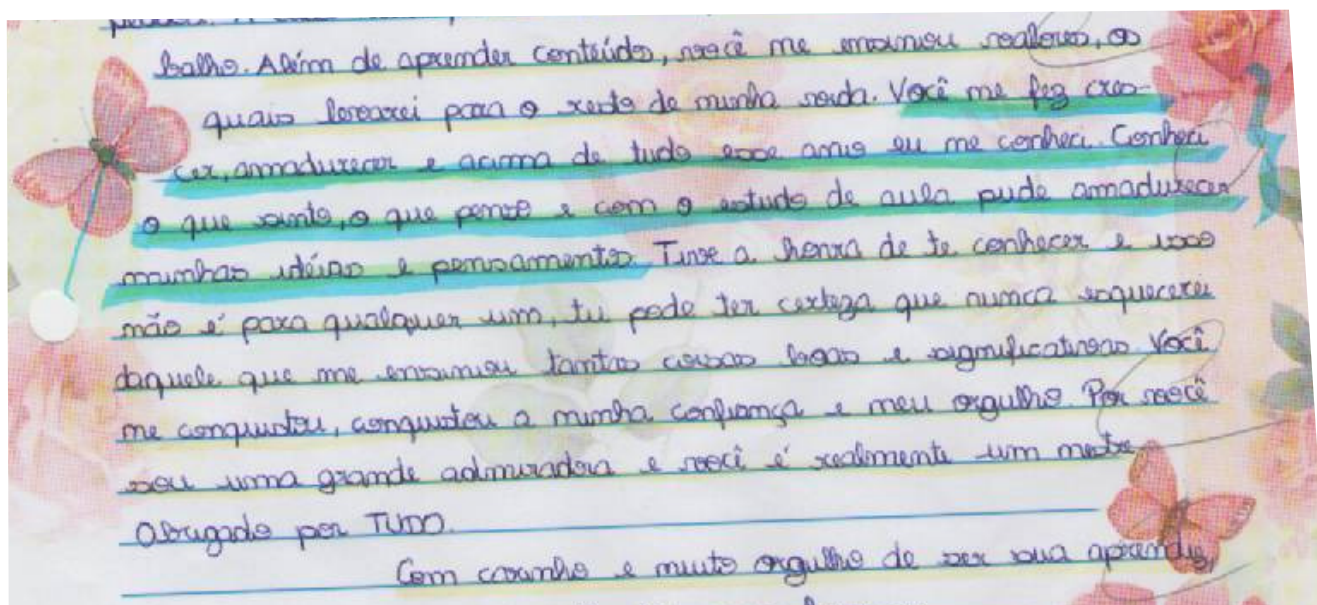 balho. Além de aprender conteúdo, você me ensinou valores, os
quais levarei para o resto de minha vida. Você me fez cres-
cer, amadurecer e acima de tudo esse ano eu me conheci. Conheci
o que sinto, o que penso e com o estudo de aula pude amadurecer
minhas idéias e pensamentos. Tive a honra de te conhecer e isso
não é para qualquer um, tu pode ter certeza que nunca esquecerei
daquele que me ensinou tantas coisas boas e significativas. Você
me conquistou, conquistou a minha confiança e meu orgulho. Por você
sou uma grande admiradora e você é realmente um mestre.
Obrigado por TUDO.
Com carinho e muito orgulho de ser sua aprendiz,